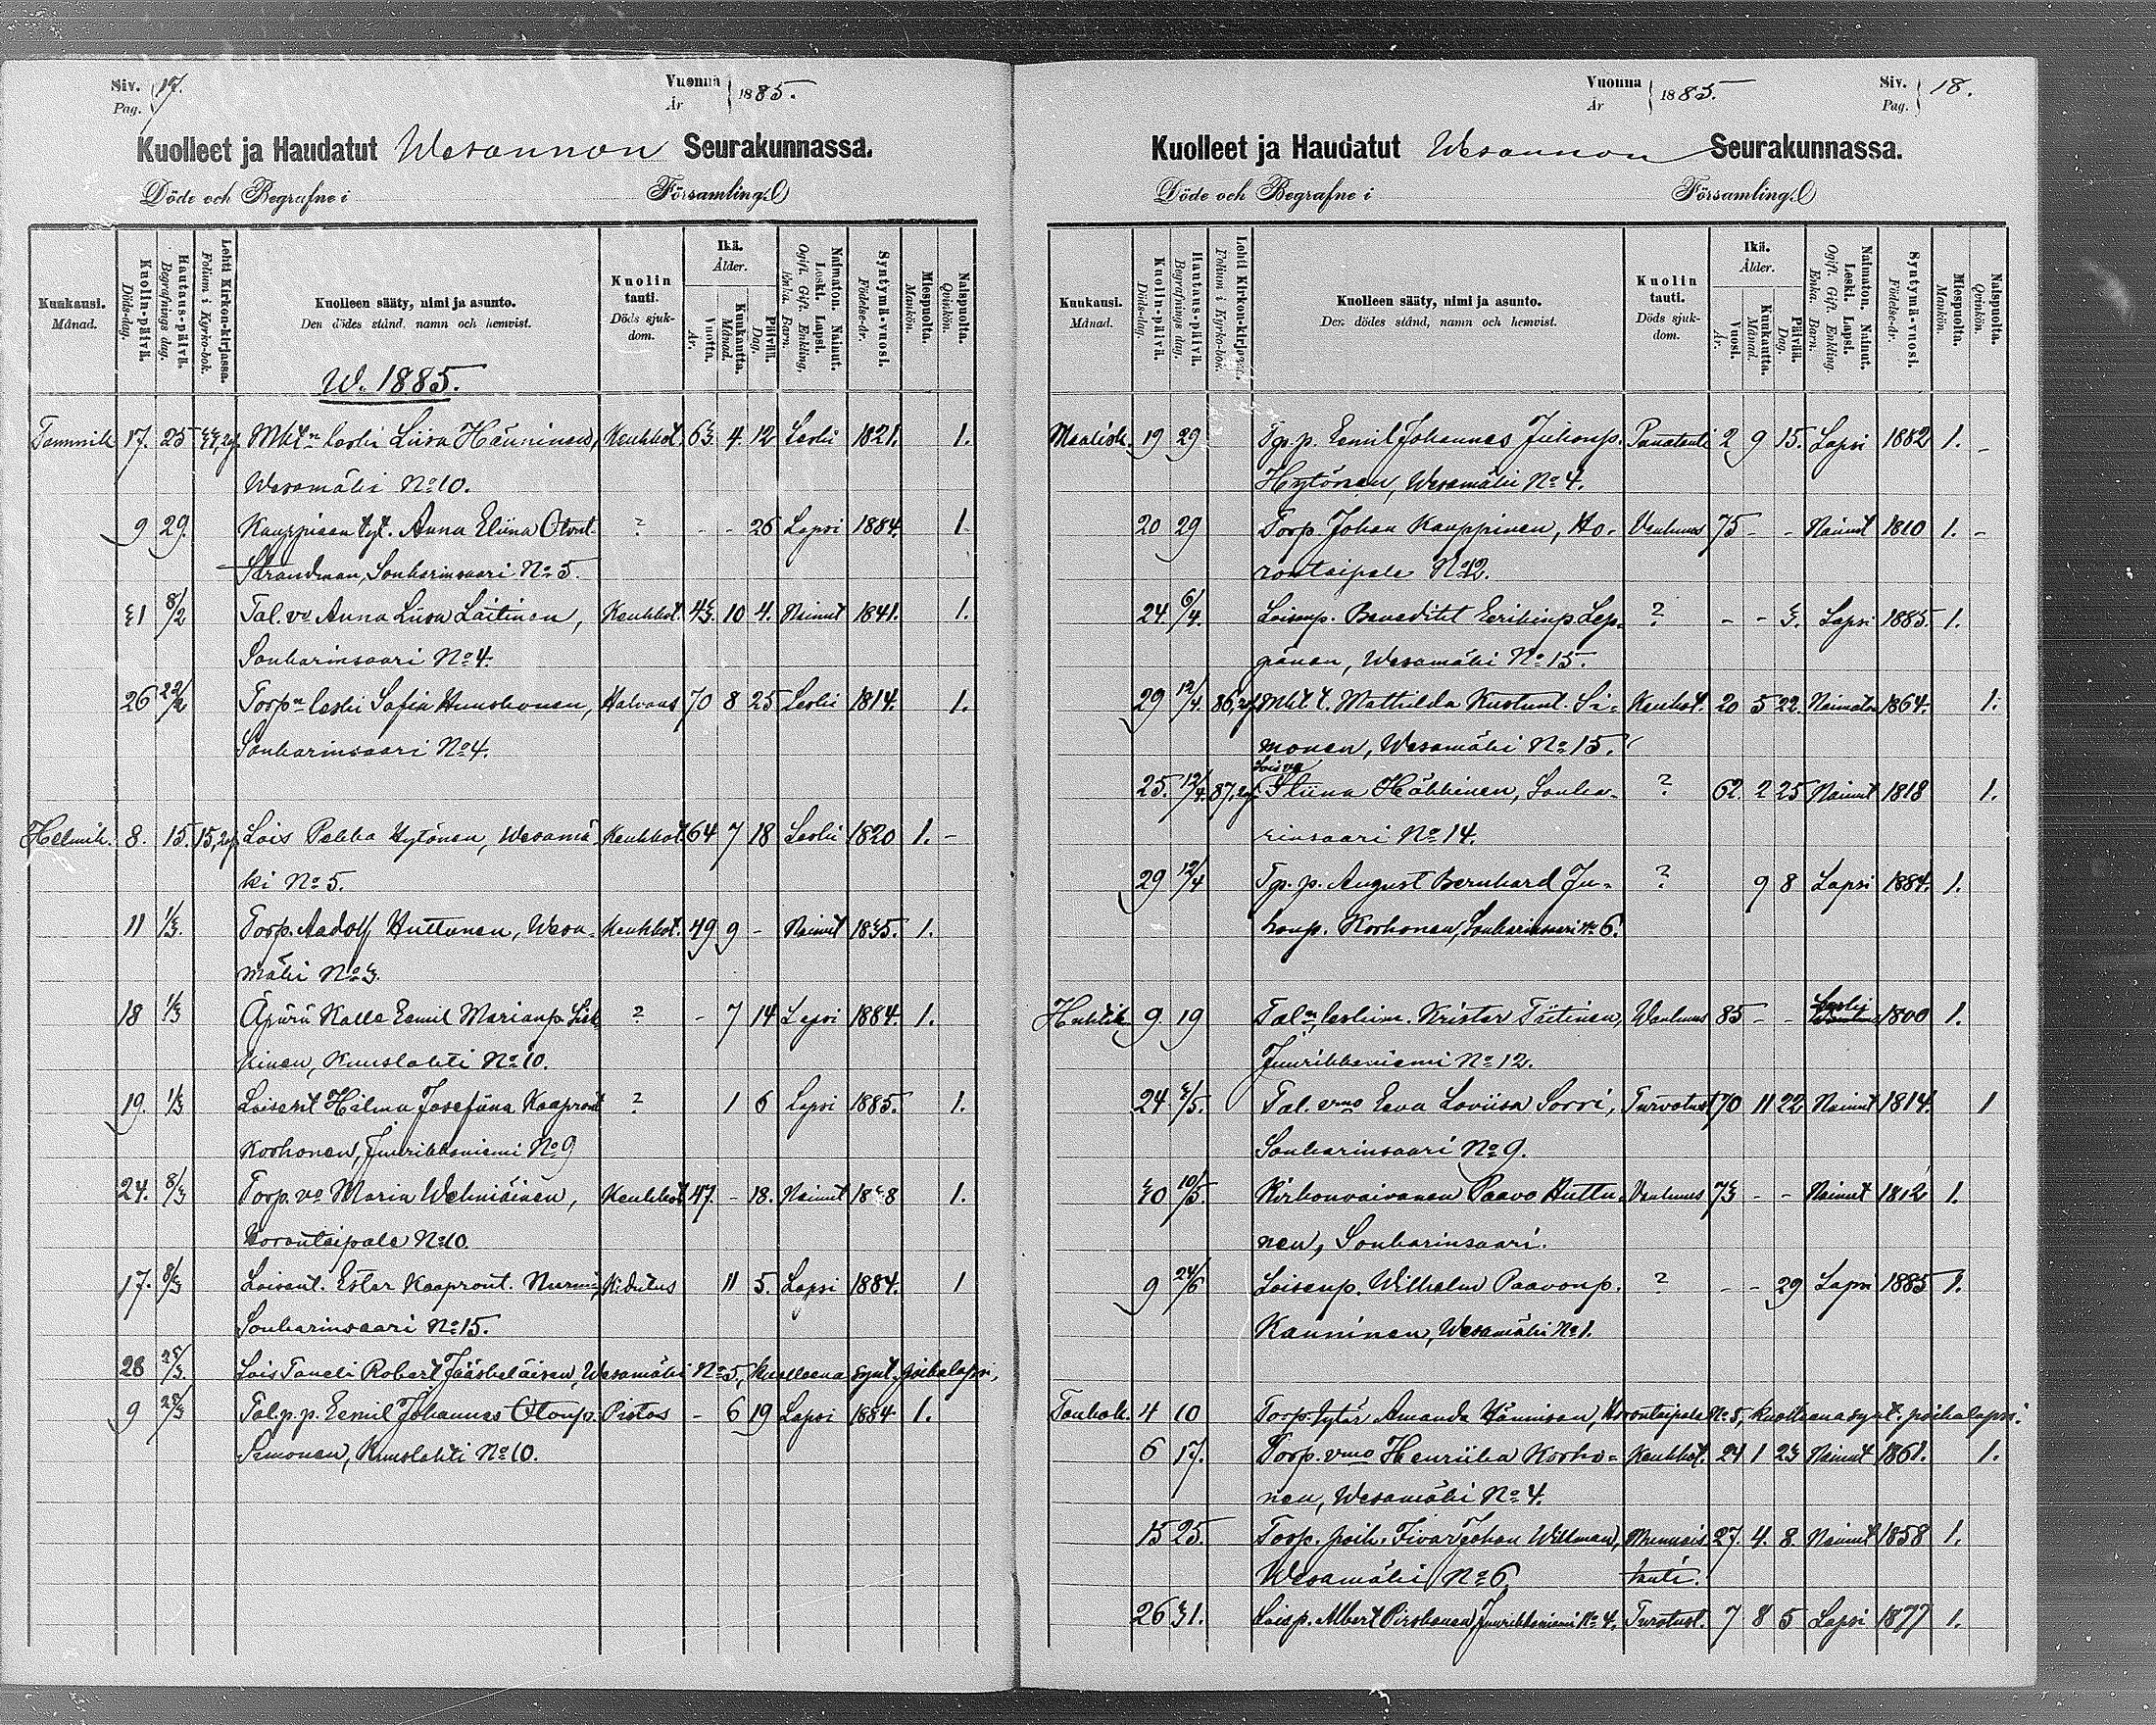 Siv. 17. Vuonna 1885.
Pag. År
Kuolleet ja Haudatut Wesannon Seurakunnassa.
Döde och Begrafne i Församling.
Kuukausi. Månad.
Kuolin-päivä. Döds-dag.
Hautaus-päivä. Begrafnings dag.
Lehti Kirkon-kirjassa. Folium i Kyrko-bok.
Kuolleen sääty, nimi ja asunto.
Den dödes stånd, namn och hemvist.
Kuolin tauti. Döds sjukdom.
Ikä. Ålder.
Vuotta. År.
Kuukautta. Månad.
Päivää. Dag.
Naimaton. Nainut. Leski. Lapsi.
Ogift. Gift. Enkling. Enka. Barn.
Syntymä-vuosi. Födelse-år.
Miespuolta. Mankön.
Naispuolta. Qvinkön.
W. 1885.
Tammik 17. 25 Mkt:n leski Liisa Hänninen, Keuhkot. 63 4. 12 Leski 1821. 1.
Wesamäki No 10.
9 29. Kauppiaan tyt. Anna Eliina Olont. ? - - 26 Lapsi 1884. 1.
Strandman, Sonkarinsaari No 5.
31 8/2 Tal. vo Anna Liisa Laitinen, Keuhkot. 43. 10 4. Nainut 1841. 1.
Sonkarinsaari No 4.
26 22/2 Torp:n leski Sofia Huuskonen, Halvaus 70 8 25 Leski 1814. 1.
Sonkarinsaari No 4.
Helmik. 8. 15. 15, Lois Pekka Hytönen, Wesamä- Keuhkot 64 7 18 Leski 1820 1. -
ki No 5.
11 1/3. Torp. Aadolf Huttunen, Wesa- Keuhkot. 49 9 - Nainut 1835. 1.
mäki No 3.
18 1/3 Äpärä Kalle Eemil Marianp. ? - 7 14 Lapsi 1884. 1.
kinen, Kuuslahti No 10.
19. 1/3 Hilma Josefiina Kaapront ? 1 6 Lapsi 1885. 1.
Korhonen, Juurikkaniemi No 9
24. 8/3 Torp. vo Maria Wehniäinen, Keuhkot 47. - 18. Nainut 1838 1.
Horontaipale No 10.
17. 8/3 Loisent. Ester Kaapront. Nurmi, Kidutus 11 5. Lapsi 1884. 1
Sonkarinsaari No 15.
28 25/3. Lois Taneli Robert Jääskeläisen, Wesamäki No 5, kuolleena synt. poikalapsi,
9 Tal. p. p. Eemil Johannes Olonp. Pistos - 6 19 Lapsi 1884. 1.
Simonen, Kuuslahti No 10.
Vuonna 1885. Siv. 18.
År Pag.
Kuolleet ja Haudatut Wesannon Seurakunnassa.
Döde och Begrafne i Församling.
Kuukausi. Månad.
Kuolin-päivä. Döds-dag.
Hautaus-päivä. Begrafnings dag.
Lehti Kirkon-kirjassa. Folium i Kyrko-bok.
Kuolleen sääty, nimi ja asunto.
Den dödes stånd, namn och hemvist.
Kuolin tauti. Döds sjukdom.
Ikä. Ålder.
Vuosi. År.
Kuukautta. Månad.
Päivää. Dag.
Naimaton. Nainut. Leski. Lapsi.
Ogift. Gift. Enkling. Enka. Barn.
Syntymä-vuosi. Födelse-år.
Miespuolta. Mankön.
Naispuolta. Qvinkön.
Maalisk. 19 29 Tp. p. Eemil Johannes Juhonp. 2 9 15. Lapsi 1882 1. -
Hytönen, Wesamäki No 4.
20 29 Torp. Johan Kauppinen, Ho- Vanhuus 75 - - Nainut 1810 1. -
rontaipale No 12.
24. 6/4. Loisenp. Beneditkt Eerikinp. Lep- ? - - 3. Lapsi 1885. 1.
pänen, Wesamäki No 15.
29 12/4. 86, Mkt t. Mathilda Kustunt. Si- Keuhkot. 20 5 22. Naimaton 1864. 1.
monen, Wesamäki No 15.
Lois vo
25. 12/4. 87, Stiina Häkkinen, Sonka- ? 62. 2 25 Nainut 1818 1.
rinsaari No 14.
29 12/4 Tp. p. August Bernhard Ju- ? 9 8 Lapsi 1884. 1.
honp. Korhonen, Sonkarinsaari No 6.
Huhtik 9. 19 Tal:n leskim. Krister Tiitinen, Wanhuus 85 - - Leski 1800 1.
Juurikkaniemi No 12.
24 3/5. Tal. vmo Eeva Loviisa Sorri, Turvotust 70 11 22 Nainut 1814. 1
Sonkarinsaari No 9.
30 10/5. Kirkonvaivanen Paavo Huttu- Vanhuus 73 - - Nainut 1812 1.
nen, Sonkarinsaari.
9 24/6 Loisenp. Wilhelm Paavonp. ? - - 29 Lapsi 1885 1.
Kauninen, Wesamäki No 1.
Toukok. 4 10 Torp. tytär Amanda Hännisen, Horontaipale No 5, kuolleena synt. poikalapsi.
6 17. Torp. vmo Henriika Korho- Keuhkot. 24 1 23 Nainut 1861. 1.
nen, Wesamäki No 4.
15 25. Torp. poik. Iivar Johan Willman, Munuais 27. 4. 8. Nainut 1858 1.
Wesamäki No 6 tauti.
26 31. Loisp. Albert Pirskanen, Juurikkaniemi No 4. Turotust. 7 8 5 Lapsi 1877 1.